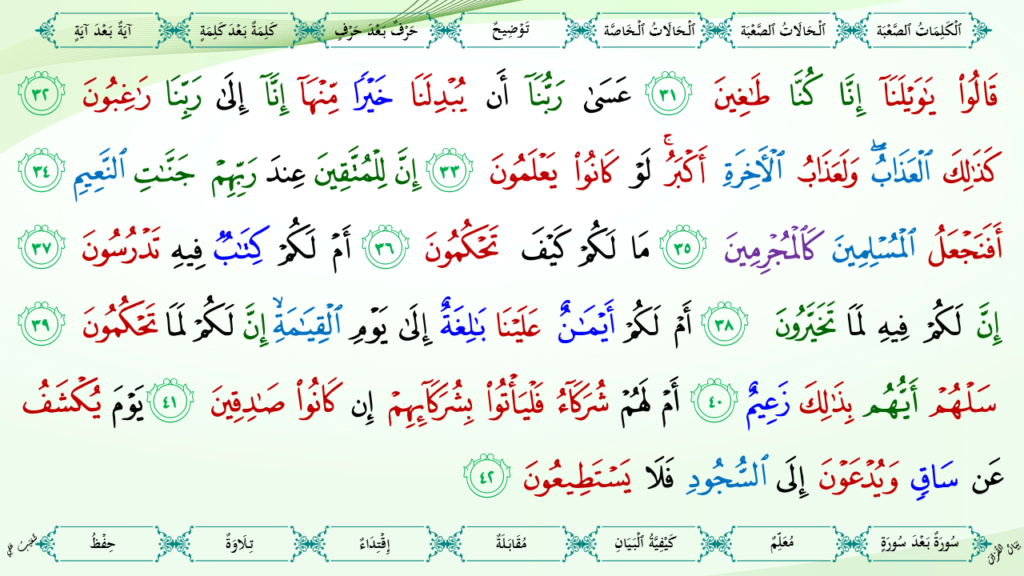 اَلْكَلِمَاتُ الصَّعْبَة اَلْحَالَاتُ الصَّعْبَة اَلْحَالَاتُ الْخَاصَّة تَوْضِيحٌ حَرْفٌ بَعْدَ حَرْفٍ كَلِمَةٌ بَعْدَ كَلِمَةٍ آيَةٌ بَعْدَ آيَةٍ
قَالُوا۟ يَـٰوَيْلَنَآ إِنَّا كُنَّا طَـٰغِينَ ٣١ عَسَىٰ رَبُّنَآ أَن يُبْدِلَنَا خَيْرًا مِّنْهَآ إِنَّآ إِلَىٰ رَبِّنَا رَٰغِبُونَ ٣٢
كَذَٰلِكَ ٱلْعَذَابُ ۖ وَلَعَذَابُ ٱلْـَٔاخِرَةِ أَكْبَرُ ۚ لَوْ كَانُوا۟ يَعْلَمُونَ ٣٣ إِنَّ لِلْمُتَّقِينَ عِندَ رَبِّهِمْ جَنَّـٰتِ ٱلنَّعِيمِ ٣٤
أَفَنَجْعَلُ ٱلْمُسْلِمِينَ كَٱلْمُجْرِمِينَ ٣٥ مَا لَكُمْ كَيْفَ تَحْكُمُونَ ٣٦ أَمْ لَكُمْ كِتَـٰبٌ فِيهِ تَدْرُسُونَ ٣٧
إِنَّ لَكُمْ فِيهِ لَمَا تَخَيَّرُونَ ٣٨ أَمْ لَكُمْ أَيْمَـٰنٌ عَلَيْنَا بَـٰلِغَةٌ إِلَىٰ يَوْمِ ٱلْقِيَـٰمَةِ ۙ إِنَّ لَكُمْ لَمَا تَحْكُمُونَ ٣٩
سَلْهُمْ أَيُّهُم بِذَٰلِكَ زَعِيمٌ ٤٠ أَمْ لَهُمْ شُرَكَآءُ فَلْيَأْتُوا۟ بِشُرَكَآئِهِمْ إِن كَانُوا۟ صَـٰدِقِينَ ٤١ يَوْمَ يُكْشَفُ
عَن سَاقٍ وَيُدْعَوْنَ إِلَى ٱلسُّجُودِ فَلَا يَسْتَطِيعُونَ ٤٢
سُورَةٌ بَعْدَ سُورَةٍ مُعَلِّمٌ كَيْفِيَّةُ الْبَيَانِ مُقَابَلَةٌ إِقْتِدَاءٌ تِلَاوَةٌ حِفْظُ
بَيَانُ القُرْآن